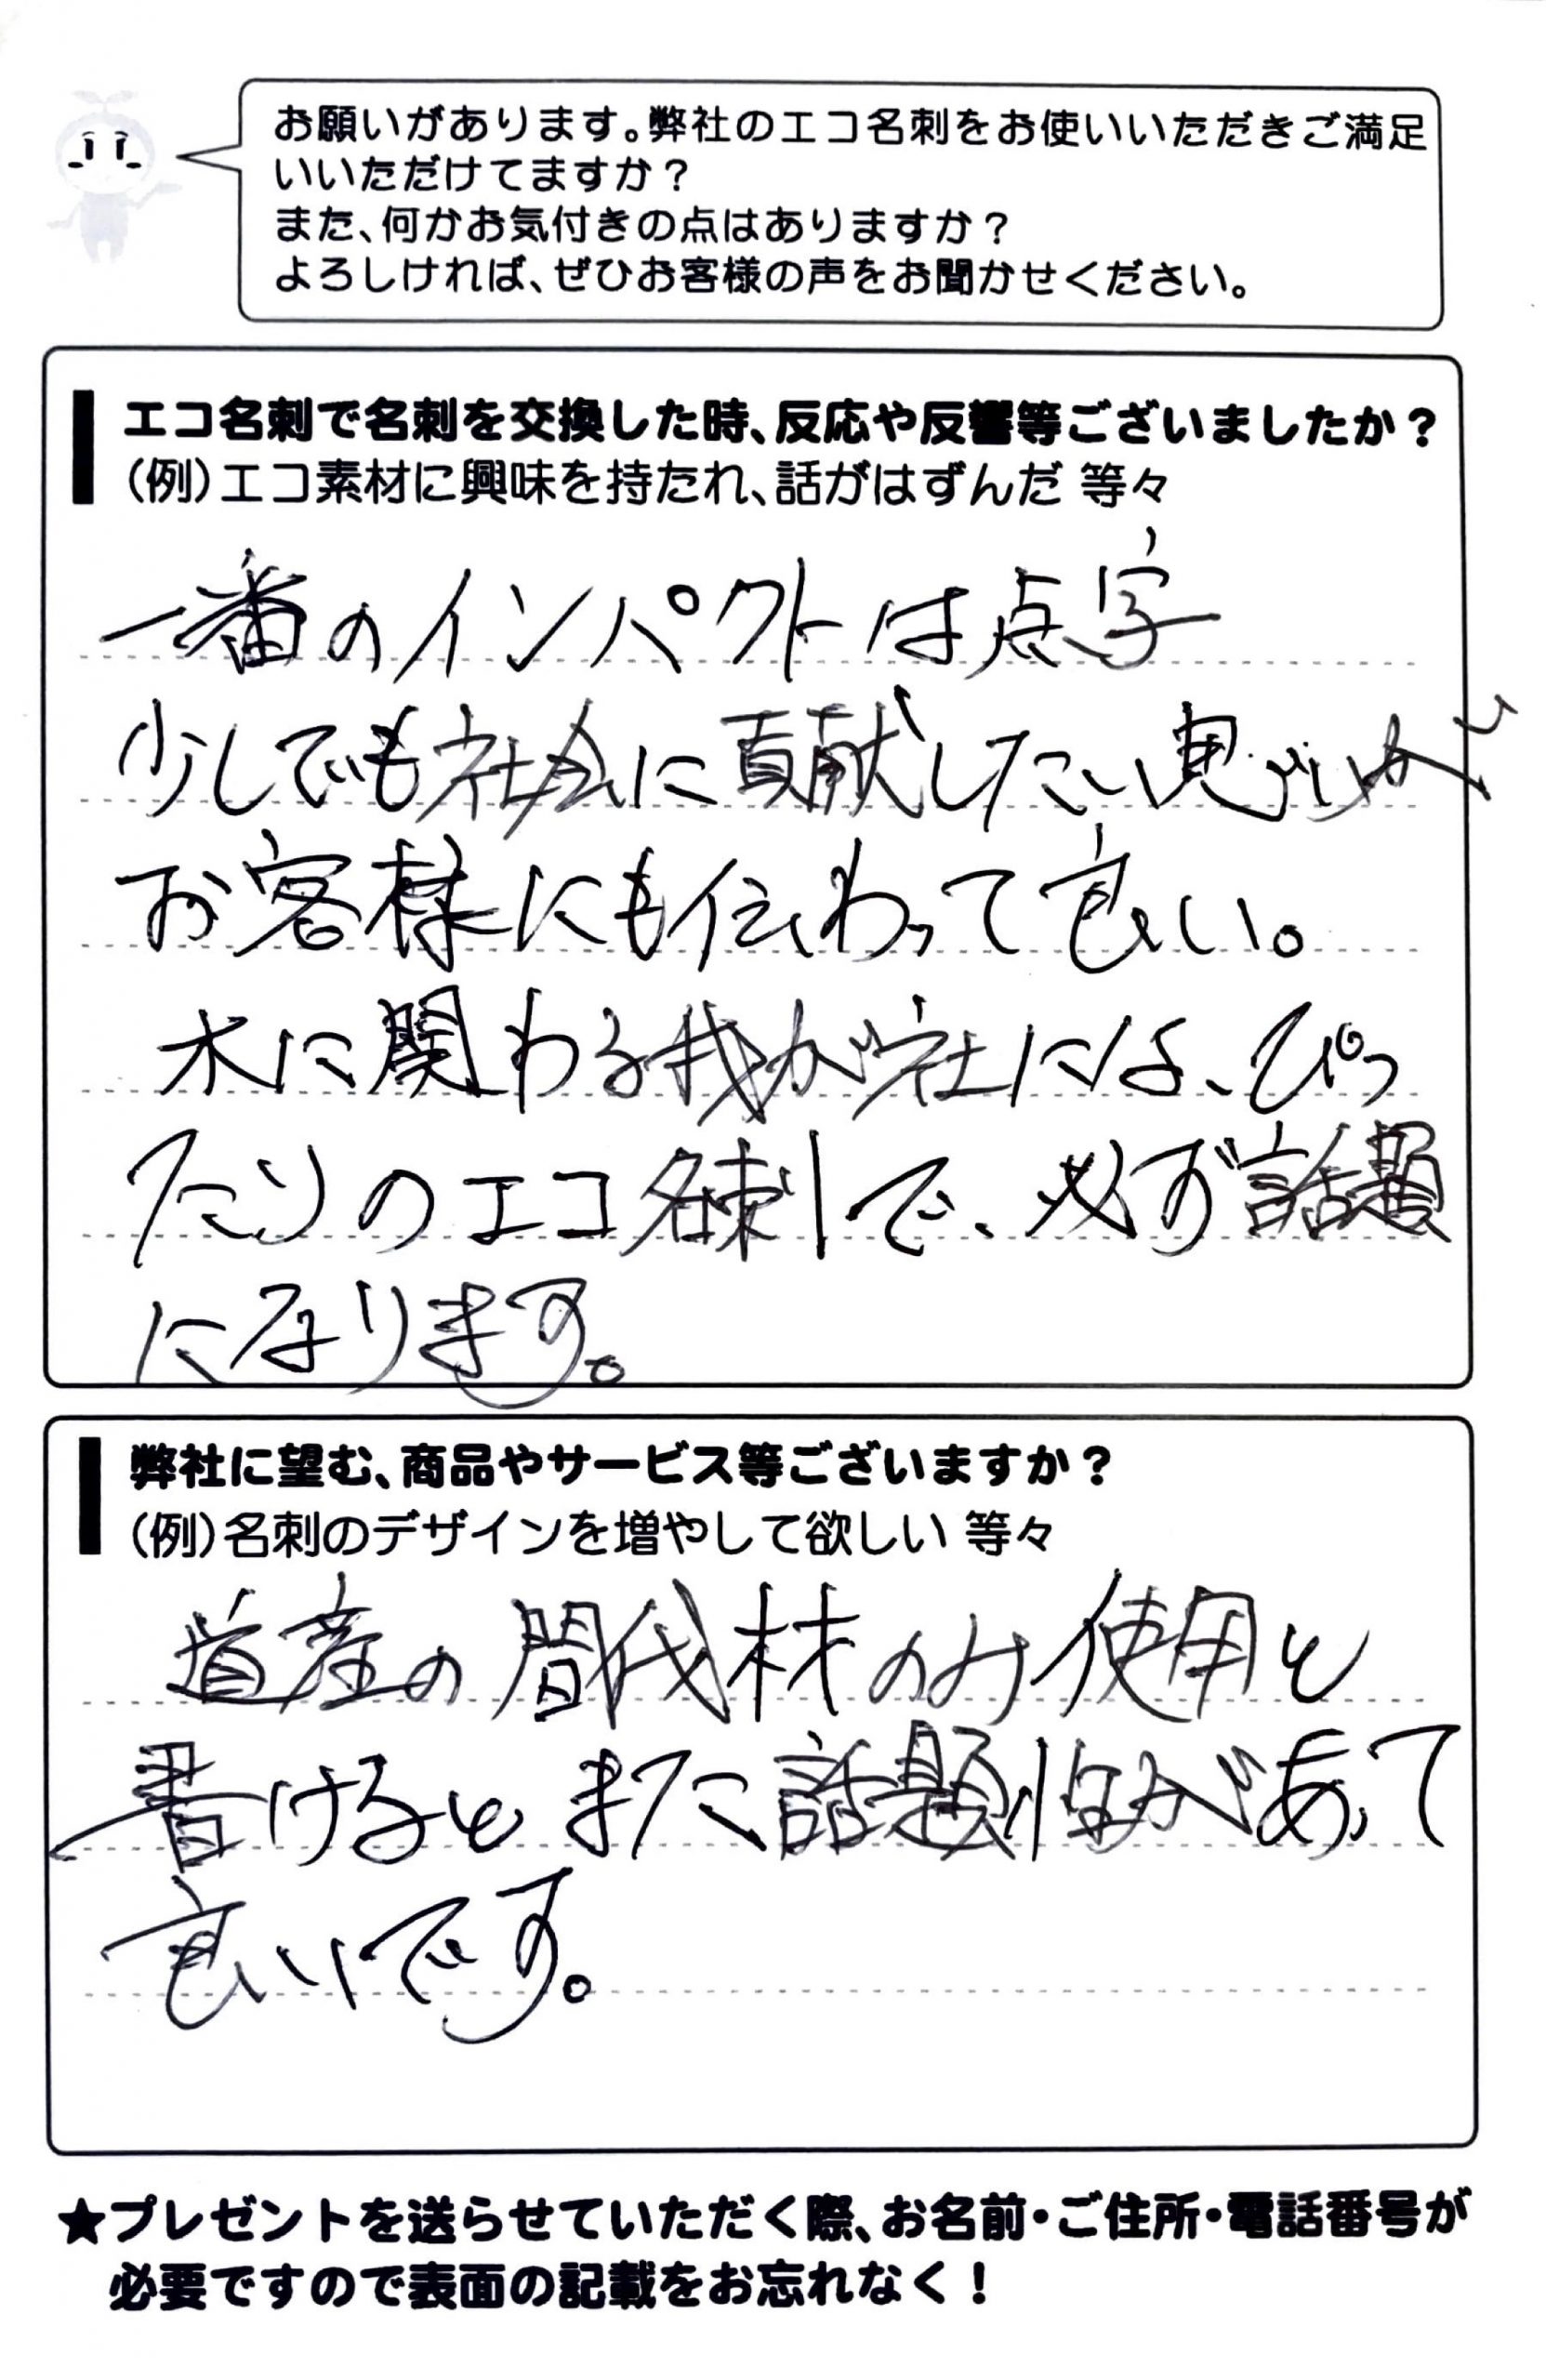 お願いがあります。弊社のエコ名刺をお使いいただきご満足
いいただけてますか？
また、何かお気付きの点はありますか？
よろしければ、ぜひお客様の声をお聞かせください。
エコ名刺で名刺を交換した時、反応や反響等ございましたか？
（例）エコ素材に興味を持たれ、話がはずんだ 等々
一番のインパクトは点字
少しでも社会に貢献したい思いが
お客様にも伝わって良い。
木に関わる我が社には、ぴっ
たりのエコ名刺で、必ず話題
になります。
弊社に望む、商品やサービス等ございますか？
（例）名刺のデザインを増やして欲しい 等々
道産の間伐材のみ使用と
書けるとまた話題性があって
良いです。
★プレゼントを送らせていただく際、お名前・ご住所・電話番号が
必要ですので表面の記載をお忘れなく！